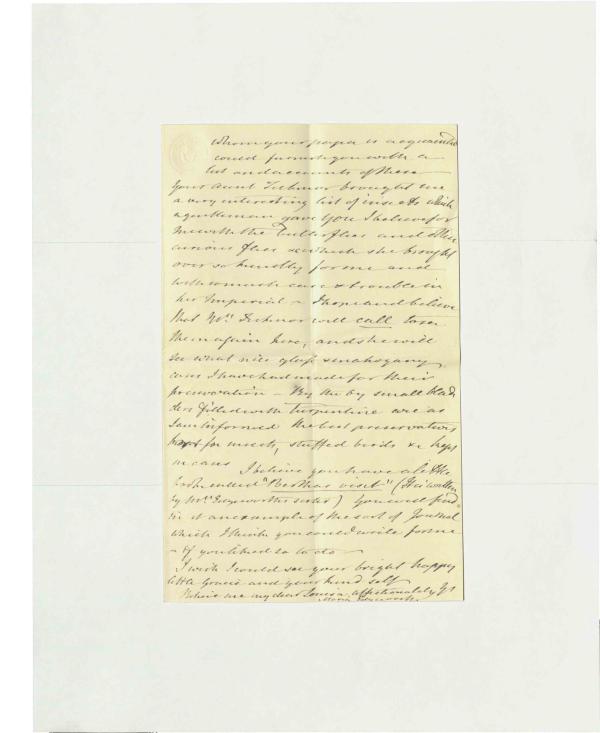 whom your papa is acquainted
could furnish you with a
list and accounts of these
Your Aunt Ticknor brought me
a very interesting list of insects which
a gentleman gave you I believe for
me with the Butterflies and other
curious flies &c which she brought
over so kindly for me and
with so much care & trouble in
her Imperial ~ I hope and believe
that Mrs Ticknor will call to see
them again here, and she will
see what nice glass & mahogany
cases I have had made for their
preservation – By the by small blad
ders filled with turpentine are as
I am informed the best preservatives
for insects, stuffed birds &c kept
in cases I believe you have a little
book entitled "Berthas visit" (It is written
by Mrs Edgeworths sister) You will find
in it an example of the sort of Journal
which I think you could write for me
– if you liked so to do –
I wish I could see your bright happy
little Gracie and your kind self
Believe me my dear Louisa affectionately Yrs
Maria Edgeworth